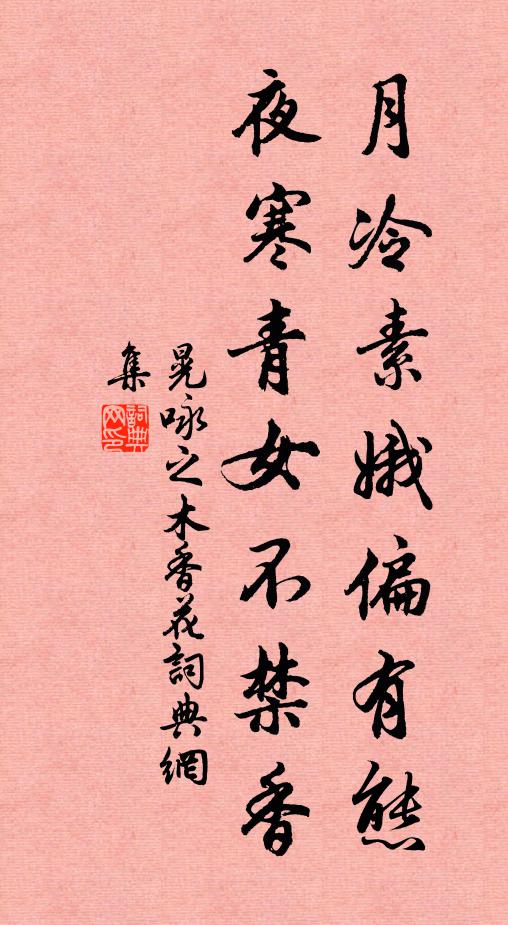 月冷素娥偏有態
夜寒青女不禁香
晁咏之木香花詞典網
集
詞典
网印